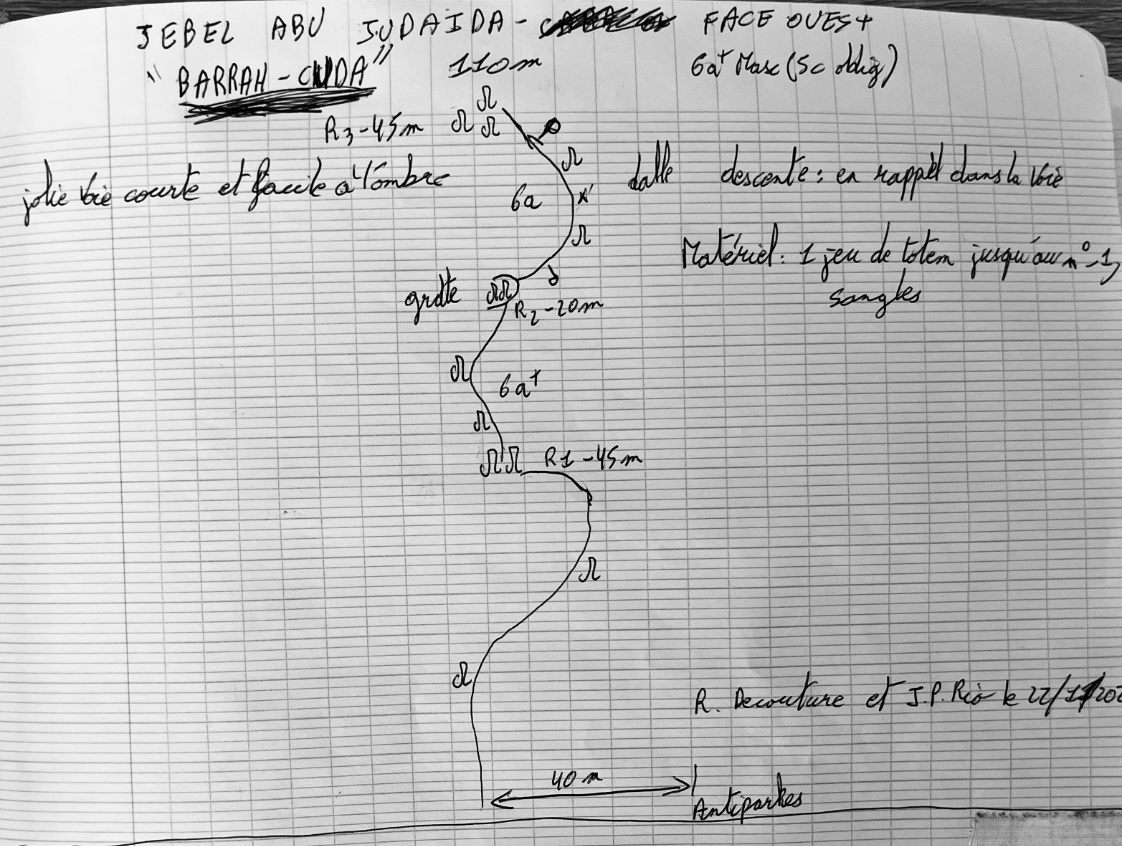 JEBEL ABU JUDAIDA - FACE OUEST
"BARRAH-CUDA" 110m 6a+ Max (5c oblig)
R3-45m
jolie voie courte et facile à l'ombre
dalle descente: en rappel dans la voie
6a
Matériel: 1 jeu de totem jusqu'au n°1,
sangles
grotte
R2-20m
6a+
R1-45m
R. Decouture et J.P. Rio le 22/11/202
40m
Antiparkes